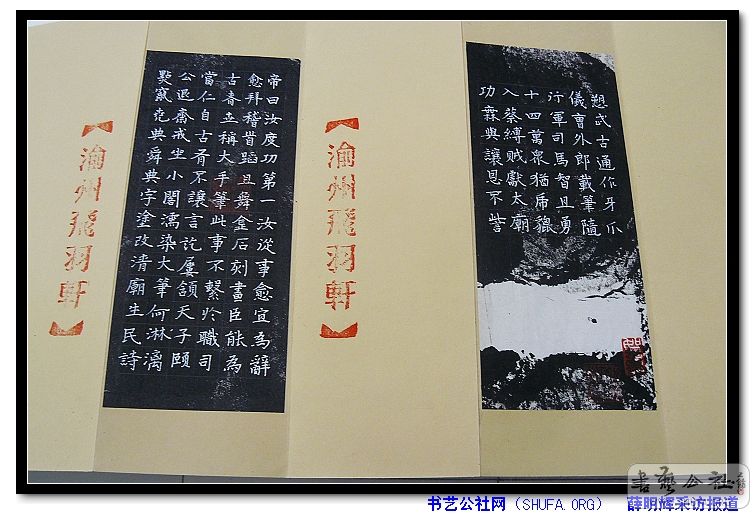 愬武古通作牙爪
儀曹外郎載筆隨
行軍司馬智且勇
十四萬衆猶虎貔
入蔡縛賊獻太廟
功無與讓恩不訾
【渝州飛羽軒】
帝曰汝度功第一汝從事愈宜為辭
愈拜稽首蹈且舞金石刻畫臣能為
古者世稱大手筆此事不繫於職司
當仁自古有不讓言訖屢頷天子頤
公退齋戒坐小閤濡染大筆何淋漓
點竄堯典舜典字塗改清廟生民詩
【渝州飛羽軒】
书艺公社
书艺公社网（SHUFA.ORG） 薛明辉采访报道